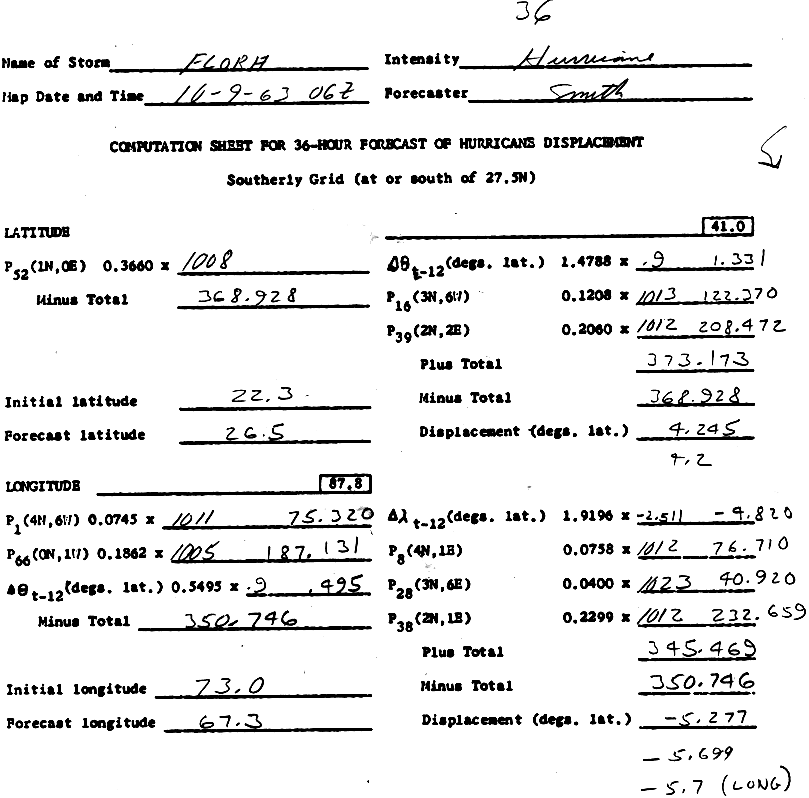 36
Name of Storm FLORA Intensity Hurricane
Map Date and Time 10-9-63 06Z Forecaster Smith
COMPUTATION SHEET FOR 36-HOUR FORECAST OF HURRICANE DISPLACEMENT
Southerly Grid (at or south of 27.5N)
LATITUDE 41.0
P52(1N,0E) 0.3660 x 1008
Minus Total 368.928
Δθt-12(degs. lat.) 1.4788 x .9 1.331
P16(3N,6W) 0.1208 x 1013 122.370
P39(2N,2E) 0.2060 x 1012 208.472
Plus Total 373.173
Initial latitude 22.3
Minus Total 368.928
Forecast latitude 26.5
Displacement (degs. lat.) 4.245
4.2
LONGITUDE 87.8
P1(4N,6W) 0.0745 x 1011 75.320
P66(0N,1W) 0.1862 x 1005 187.131
Δθt-12(degs. lat.) 0.5495 x .9 .495
Minus Total 350.746
Δλt-12(degs. lat.) 1.9196 x -2.511 -4.820
P8(4N,1E) 0.0758 x 1012 76.710
P28(3N,6E) 0.0400 x 1023 40.920
P38(2N,1E) 0.2299 x 1012 232.659
Plus Total 345.469
Initial longitude 73.0
Minus Total 350.746
Forecast longitude 67.3
Displacement (degs. lat.) -5.277
- 5.699
- 5.7 (LONG)